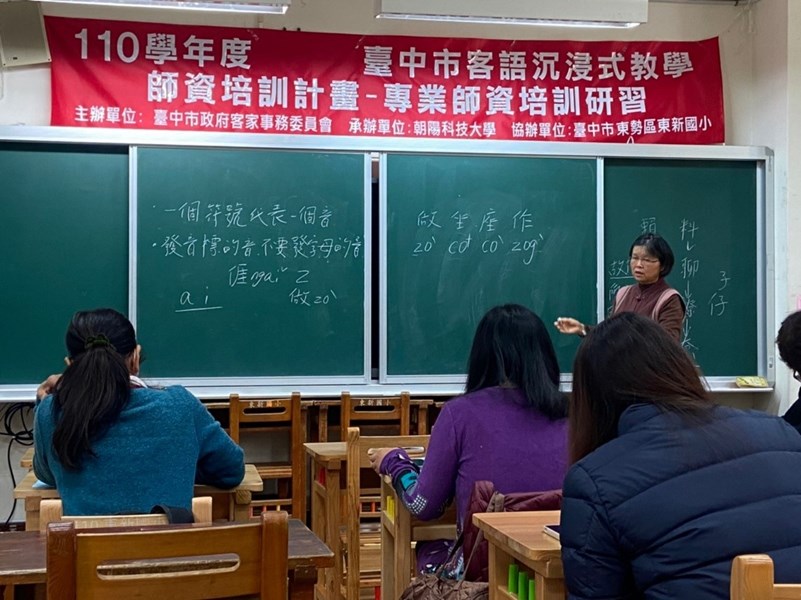 110學年度 臺中市客語沉浸式教學
師資培訓計畫-專業師資培訓研習
主辦單位：臺中市政府客家事務委員會 承辦單位：朝陽科技大學 協辦單位：臺中市東勢區東新國小
·一個符號代表一個音
·發音標的音,不要發字母的音
𠊎ngaiˇ z
ai 做zoˋ
做 坐 座 作
zoˋ co⁺ coˋ zogˋ
料
聊
子
仔